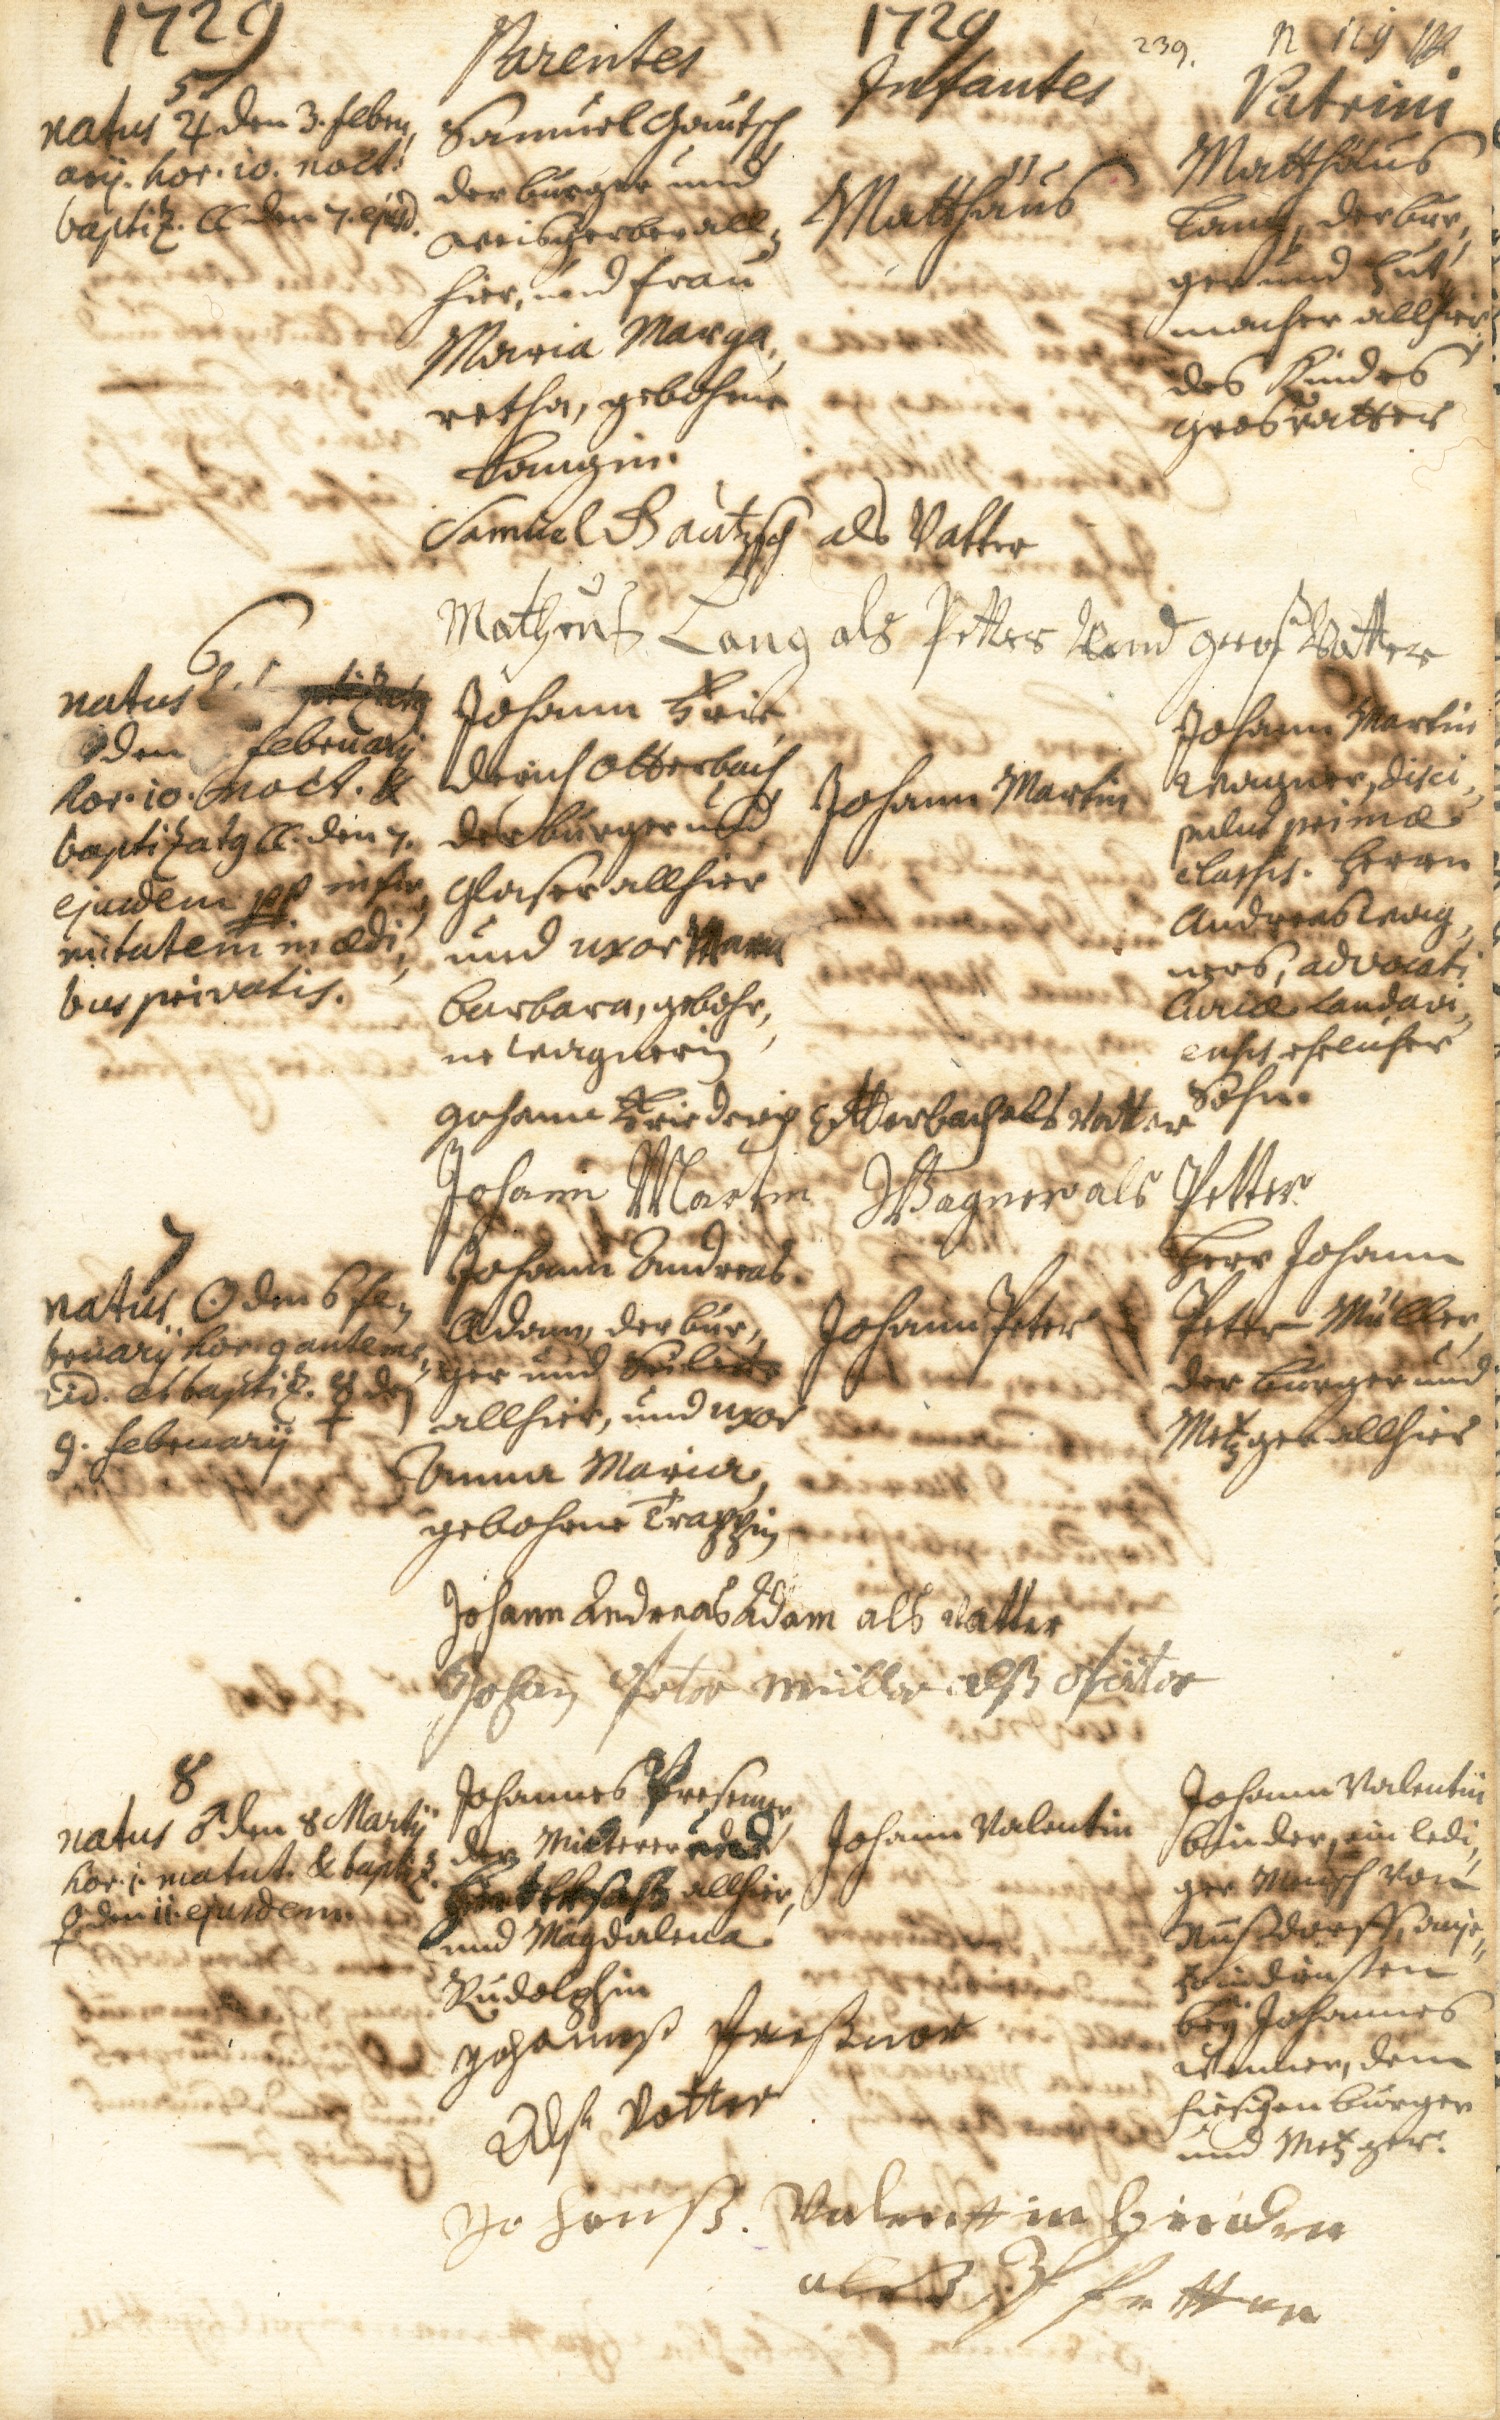 1729
Parentes
1729
Infantes
239.
Patrini
5
natus ♃ den 3. Febru,
arij. hor. 10. noct.
baptiz. ☾ den 7. ejusd.
Samuel Gautsch,
der burger und
Weisgerber all,
hier, und frau
Maria Marga,
retha, gebohrne
Langin.
Matthäus
Matthäus
Lang, der bur,
ger und Hut,
macher allhier,
des Kindes
grosvatter
Samuel Bautzsch als Vatter
Matheus Lang als Petter und gros Vatter
6
natus
den februarij
hor. 10. noct. &
baptizatq ☾. den 7.
ejusdem ob infir,
mitatem in ædi,
bus privatis.
Johann Frie,
derich Otterbach,
der burger und
Glaser allhier
und uxor Maria
Barbara, gebohr,
ne Wagnerin
Johann Martin
Johann Martin
Wagner, disci,
pulus primæ
classis. Herrn
Andreas Wag,
ners, advocati
Curiæ Landavi,
ensis ehelicher
Sohn.
Johann Friederich Otterbach als Vatter
Johann Martin Wagner als Petter
7
natus. ☉ den 6 fe,
bruarij hor. 9 anteme,
rid. et baptiz. ☿ den
9. februarij †
Johann Andreas
Adam, der bur,
ger und Seiler
allhier, und uxor
Anna Maria,
gebohrne Trappin
Johann Peter
Herr Johann
Peter Müller,
der burger und
Metzger allhier
Johann Andreas Adam als Vatter
Johan Peter Müller alß
8
natus ♂ den 8 Martij
hor. 1. matut. & baptiz.
♀ den 11. ejusdem.
Johannes
der und
allhier,
und Magdalena
Rudolphin
Johann Valentin
Johann Valentin
binder, ein ledi,
ger Mensch von
Nußdorff, anje,
tzo in diensten
bey Johannes
Wenner, dem
hiesigen burger
und Metzger.
Johannes
Als Vatter
Johanß. Valenttin binder
als Pfetter